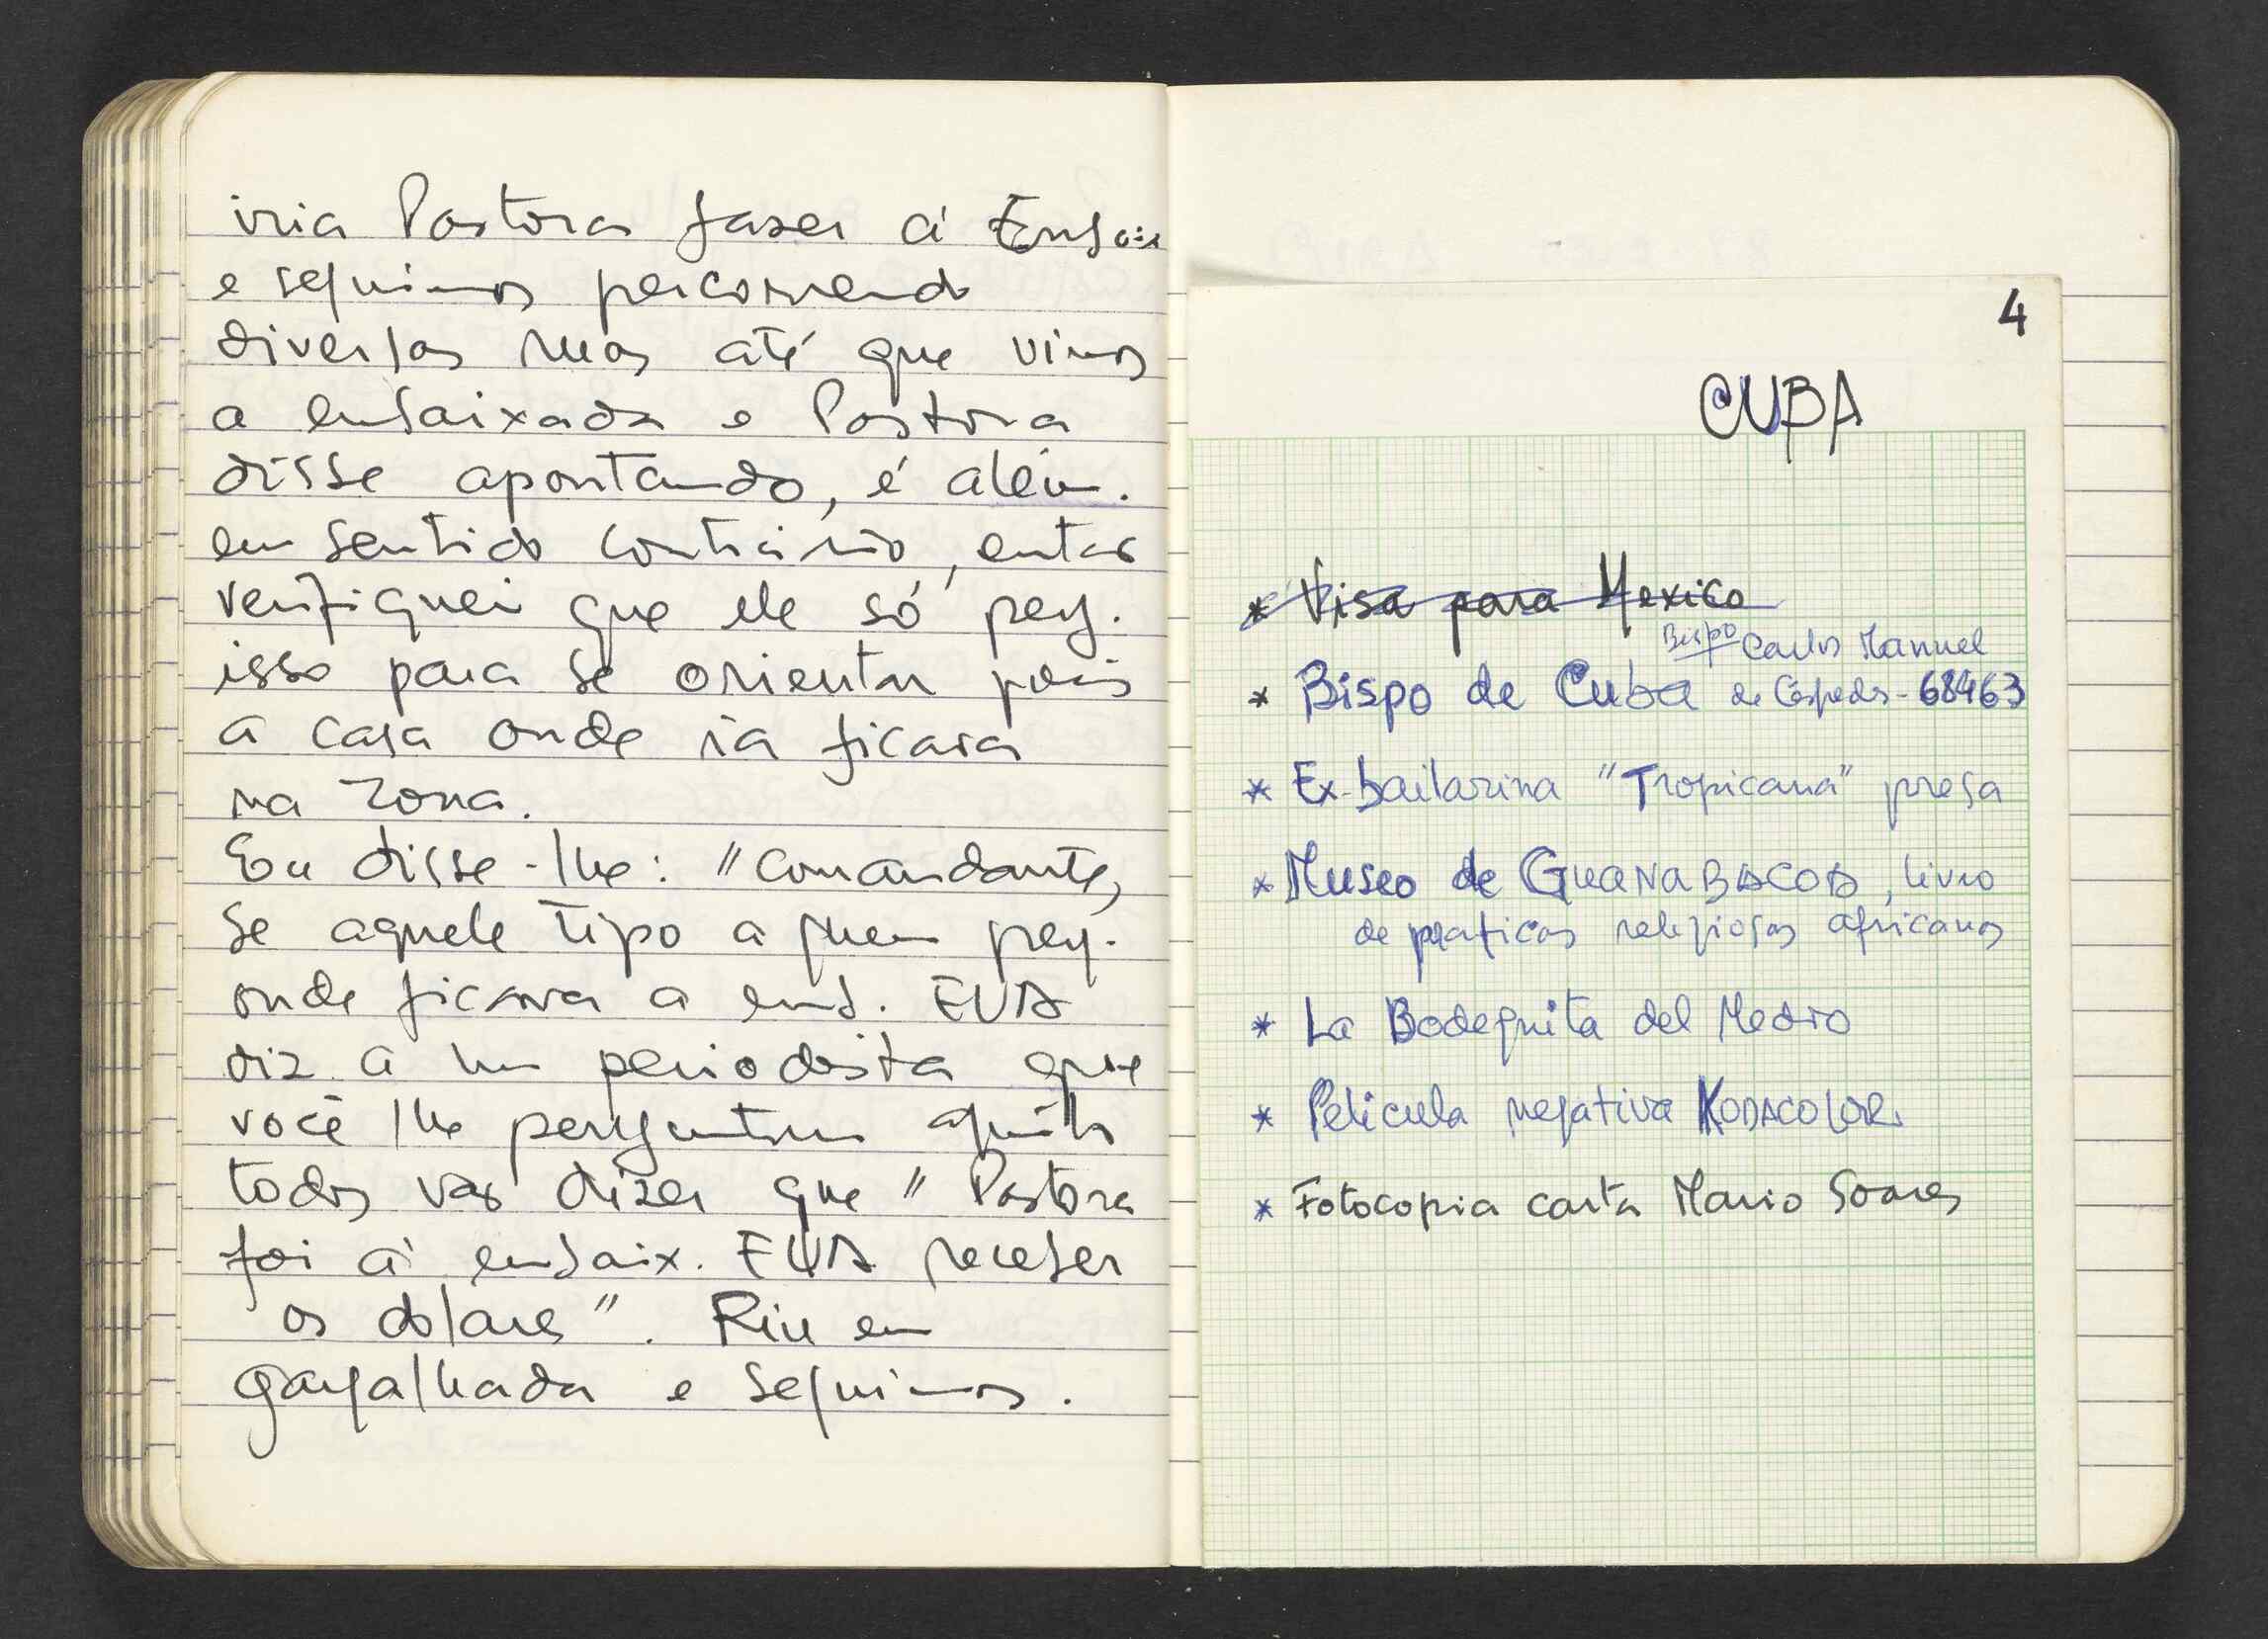 iria Pastora fazer á Embaix
e seguimos percorrendo
diversas ruas até que vimos
a embaixada e Pastora
disse apontando, é além.
em sentido contrário, entao
verifiquei que ele só perg.
isso para se orientar pois
a casa onde ia ficava
na zona.
Eu disse-lhe: "Comandante,
se aquele tipo a quem perg.
onde ficava a emb. EUA
diz a um periodista que
você lhe perguntou aquilo
todos vao dizer que "Pastora
foi á embaix. EUA receber
os dolares". Riu em
gargalhada e seguimos.
4
CUBA
* Visa para Mexico
Bispo Carlos Manuel
* Bispo de Cuba de Céspedes - 68463
* Ex-bailarina "Tropicana" presa
* Museo de GUANABACOA, livro
de praticas religiosas africanas
* La Bodeguita del Medio
* Pelicula negativa KODACOLOR
* Fotocopia carta Mario Soares